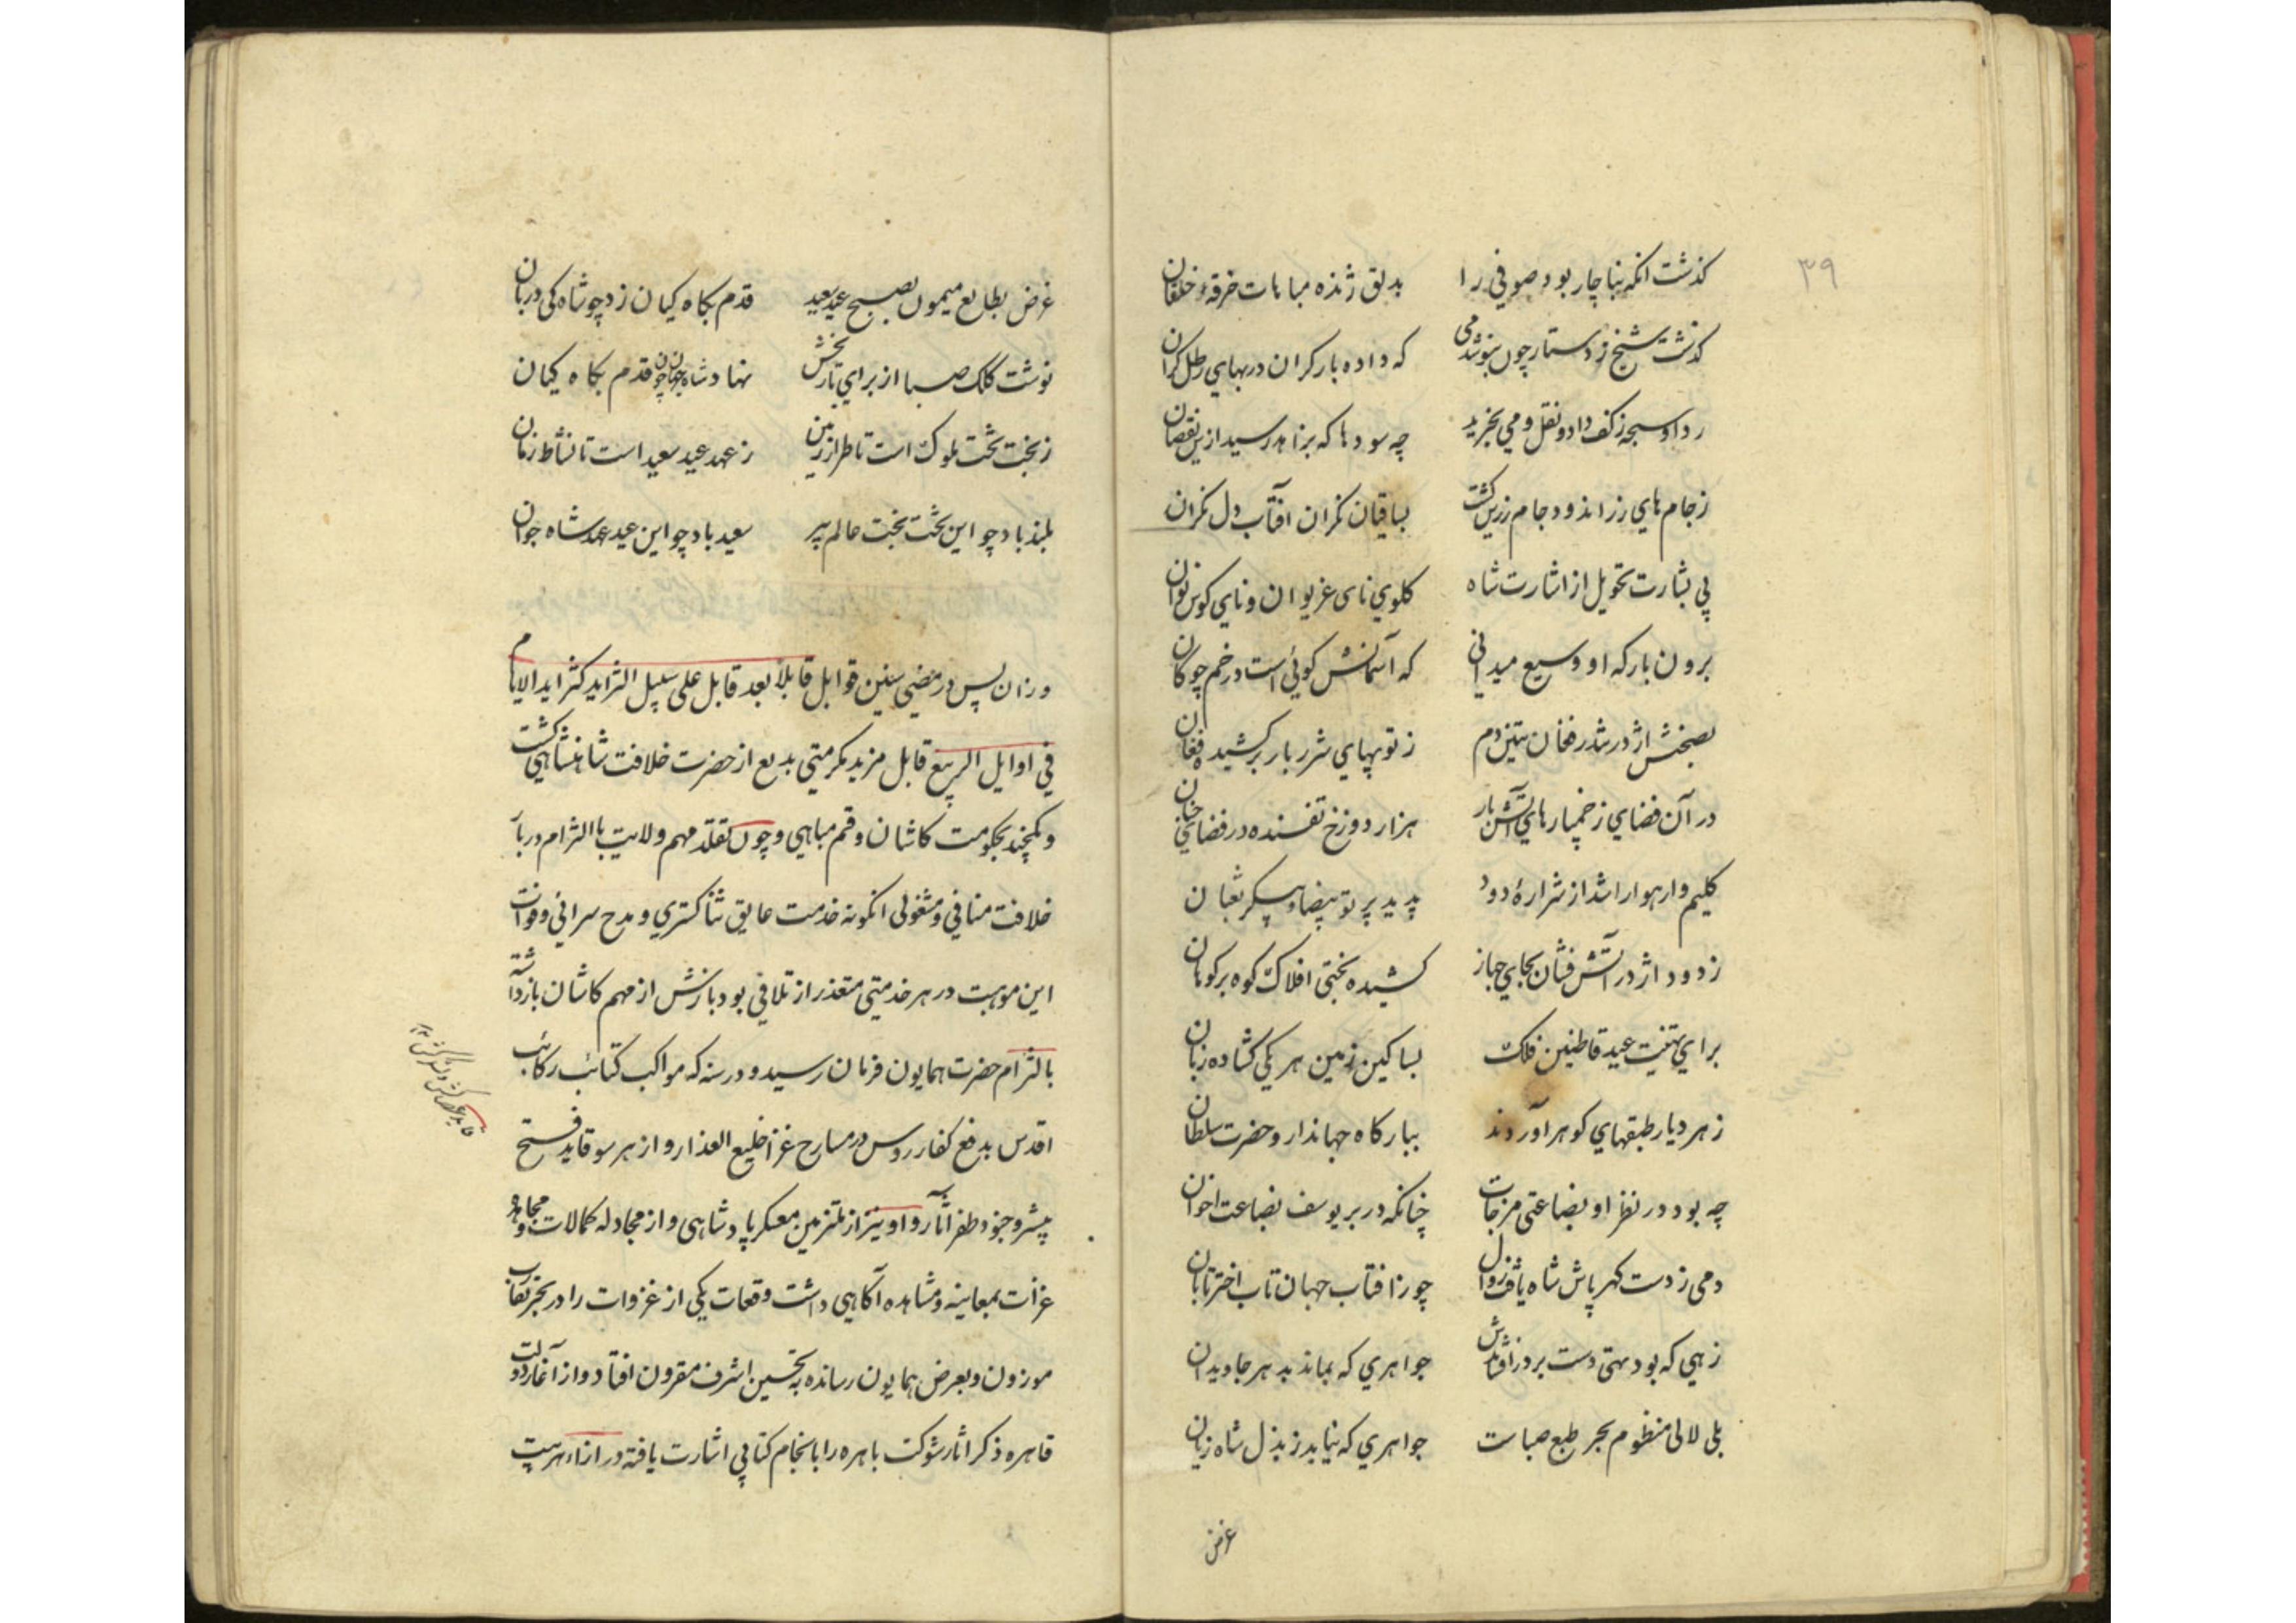 ۳۹
کذشت انکه بناچار بود صوفي را بدلق ژنده مباهات خرقهٔ خلقان
کذشت شیخ ز دستار چون بنوشد می که داده بار کران در بهاي رطل کران
ردا و سبحه ز کف داد و نقل و مي بخرید چه سودها که بزاهد رسید ازین نقصان
ز جام هاي زر اندود جام زرین کشت بساقیان نکران آفتاب دل نکران
پی بشارت تحویل از اشارت شاه کلوي نای غریوان و نای کوس نوان
برون بارکه او وسیع میدانی که آسمانش کوئی است در خم چوکان
بصحنش اژدر تندر فغان تنین دم ز توپهاي شرر بار برکشیده فغان
در آن فضاي ز خمپارهاي آتش بار هزار دوزخ تفسنده در فضاي جنان
کلیم وار هوا را شد از شرارهٔ دود پدید پرتو بیضا و پیکر ثعبان
ز دود اژدر آتش فشان بجاي جهاز کشیده بختی افلاک کوه بر کوهان
براي تهنیت عید قاطنین فلک بساکنین زمین هر یکی کشاده زبان
ز هر دیار طبقهاي کوهر آوردند ببارکاه جهاندار و حضرت سلطان
چه بود در نظر او بضاعتی مزجات چنانکه در بر یوسف بضاعت اخوان
دمی ز دست کهر پاش شاه یافت زوال چو ز افتاب جهان تاب اختر تابان
زهی که بود تهی دست بر در افشاندش جواهري که بماند بدهر جاویدان
بلی لالی منظوم بحر طبع صباست جواهري که نیابد ز بذل شاه زیان
عرض
غرض بطالع میمون بصبح عید سعید قدم بکاه کیان زد چو شاه کی دربان
نوشت کلک صبا از براي تاریخش نهاد شاه جهان چون قدم بکاه کیان
ز بخت تخت ملوک است تا طراز زمین ز عهد عید سعید است تا نشاط زمان
بلند باد چو این تخت بخت عالم پیر سعید باد چو این عید عهد شاه جوان
وزان پس در مضي سنین قوابل قابلاً بعد قابل علی سبیل التزاید کثر اید الایام
في اوایل الربیع قابل مزید مکرمتي بدیع از حضرت خلافت شاهنشاهي کشت
و یکچند بحکومت کاشان و قم مباهي و چون تقلد مهم ولایت با التزام دربار
خلافت منافي و مشغولی انکونه خدمت عایق ثنا کستري و مدح سرائي و فوات
این موهبت در هر خدمتی متعذر از تلافي بود بازش از مهم کاشان بازداشته
بالتزام حضرت همایون فرمان رسید و در سنه که مواکب کتائب رکائب
اقدس بدفع کفار روس در مسارح غزا خلیع العذار و از هر سو قاید فتح
پیشرو جنود ظفر آثار و او نیز از ملتزمین معسکر پادشاهی و از مجادله کمالات و مجاهده
غزات بمعاینه و مشاهده آکاهي داشت وقعات یکی از غزوات را در بحر تقارب
موزون و بعرض همایون رسانده بتحسین اشرف مقرون افتاد و از آغاز دولت
قاهره ذکر اثار شوکت باهره را بانجام کتابي اشارت یافته در ازاء هر بیت